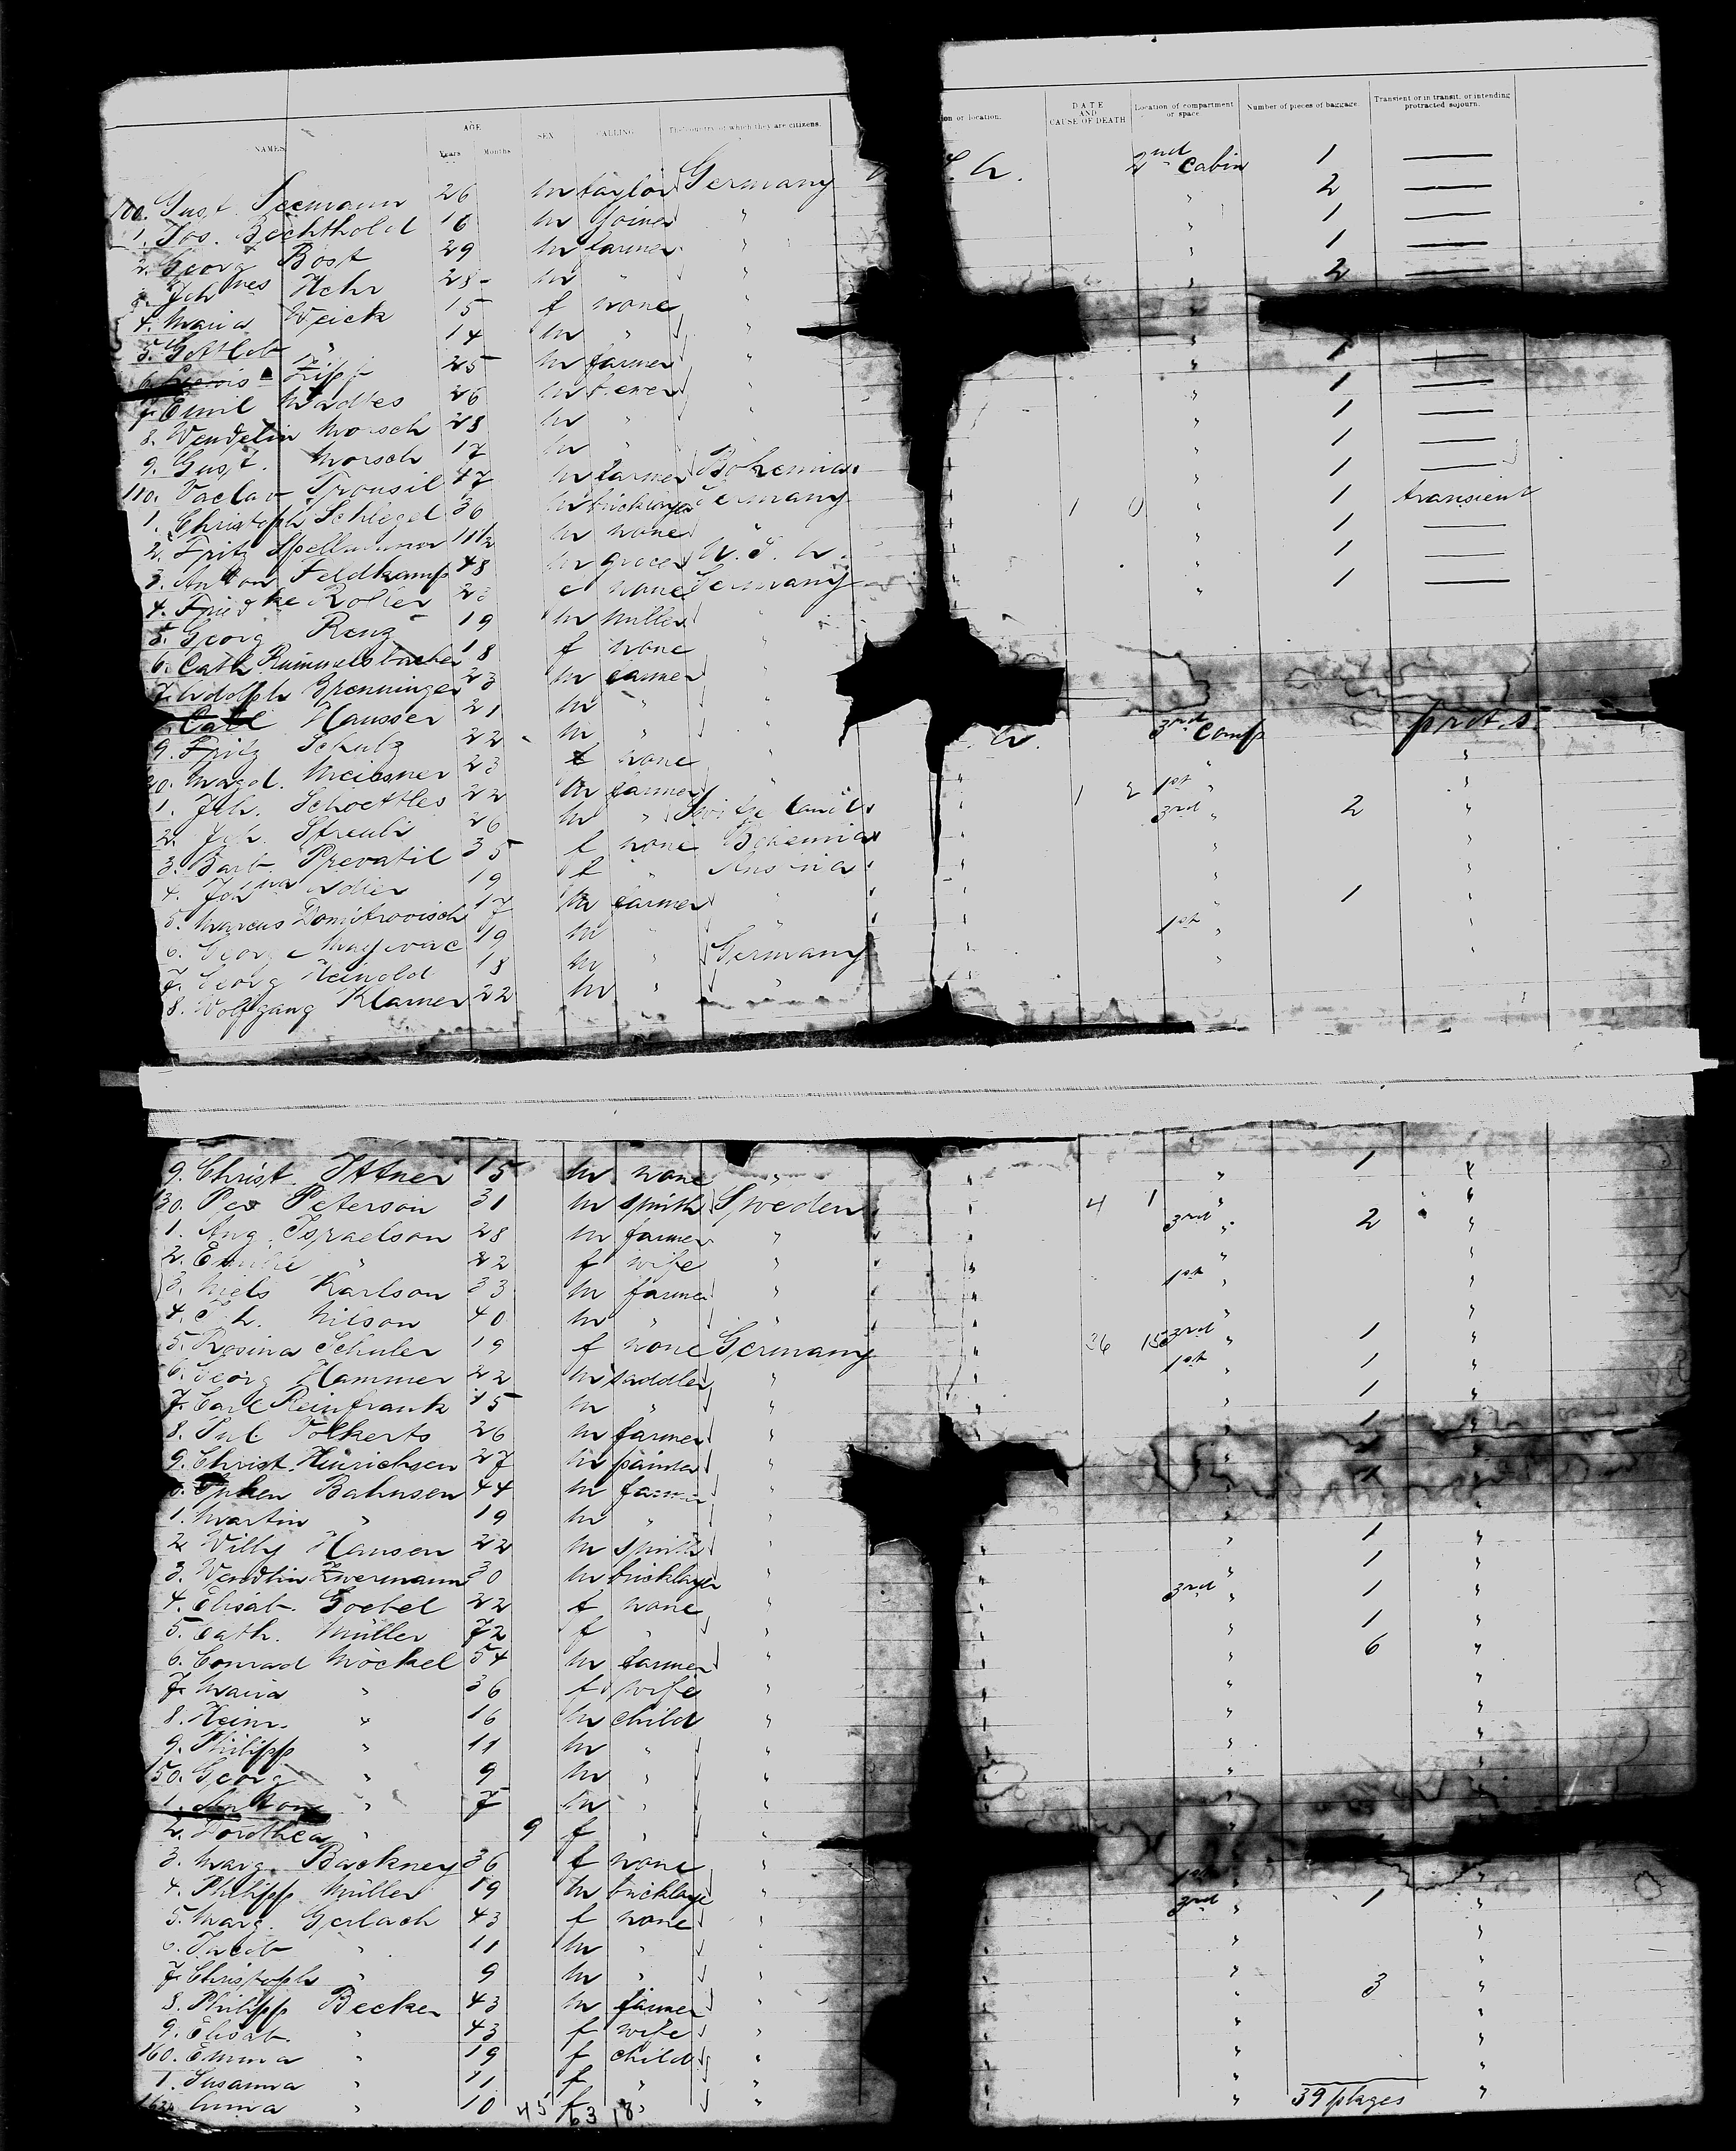 NAMES AGE Years Months SEX CALLING The country of which they are citizens. ion or location. DATE AND CAUSE OF DEATH Location of compartment or space Number of pieces of baggage. Transient or in transit, or intending protracted sojourn.
100. Gust. Seemann 26 m taylor Germany 2nd Cabin 1 —
1. Jos. Bechthold 16 m joiner " " 2 —
2. Georg Bost 29 m farmer " " 1 —
3. Johnes Hehr 25 m " " " 1 —
4. Maria Weick 15 f none " " 2 —
5. Gottlob " 14 m " "
6. Zipf 25 m farmer " " 1 —
7. Emil 26 m " " 1 —
8. Wendelin Morsch 28 m " " " 1 —
9. Gust. Morsch 17 m " " " 1 —
110. Vaclav Trousil 47 m farmer Bohemia " 1 —
1. Christoph Schlegel 30 m bricklayer Germany 1 0 " 1 transient
2. Fritz Spellmann 11 1/2 m none " " 1 —
3. Anton Feldkamp 48 m grocer U. S. A. " 1 —
4. Friedke Roller 23 f none Germany " 1 —
5. Georg Renz 19 m miller "
6. Cath. Rummelsbacher 18 f none "
7. Adolph Grenninger 23 m farmer "
Carl Hausser 21 m " "
9. Fritz Schulz 22 m " " 3rd Comp prot. s.
20. Magd. Meissner 23 f none " " "
1. Joh. Schoettles 22 m farmer " 1 2 1st " "
2. Joh. Streuli 26 m " Switzerland 3rd " 2 "
3. Barb. Prevatil 35 f none Bohemia " "
4. Johna Adler 19 f " Austria " "
5. Marcus Domitrovisch 17 m farmer " " 1 "
6. George 19 m " " 1st " "
7. Georg Heinold 18 m " Germany " "
8. Wolfgang Klamer 22 m " "
9. Christ. Ittner 15 m none " " 1 "
130. Per Peterson 31 m smith Sweden 4 1 " "
1. Aug. Israelson 28 m farmer " 3rd " 2 "
2. Emilie " 22 f wife " " "
3. Niels Karlson 33 m farmer " 1st " "
4. Nilson 40 m " " " "
5. Rosina Schuler 19 f none Germany 36 15 3rd " 1 "
6. Georg Hammer 22 m saddler " 1st " 1 "
7. Carl Reinfrank 15 m " " " 1 "
8. Jul. Volkerts 26 m farmer " " 1 "
9. Christ. Hinrichsen 27 m painter " " 1 "
Bahnsen 44 m farmer " " 1 "
1. Martin " 19 m " " " "
2. Willy Hansen 22 m smith " " 1 "
3. Wendlin Zwermann 30 m bricklayer " " 1 "
4. Elisab. Goebel 22 f none " 3rd " 1 "
5. Cath. Müller 72 f " " " 1 "
6. Conrad Möckel 54 m farmer " " 6 "
7. Maria " 36 f wife " " "
8. Heinr. " 16 m child " " "
9. Philipp " 11 m " " " "
150. Georg " 9 m " " " "
1. Anton " 7 m " " " "
2. Dorothea " 9 f " "
3. Marg. Backney 36 f none " 1st " "
4. Philipp Müller 19 m bricklayer " 3rd " 1 "
5. Marg. Gerlach 43 f none " " "
6. Jacob " 11 m " " " "
7. Christoph " 9 m " " " "
8. Philipp Becker 43 m farmer " " 3 "
9. Elisab. " 43 f wife " " "
160. Emma " 19 f child " " "
1. Susanna " 11 f " " " "
162. Anna " 10 f " " " 39 pkages "
45 63 18